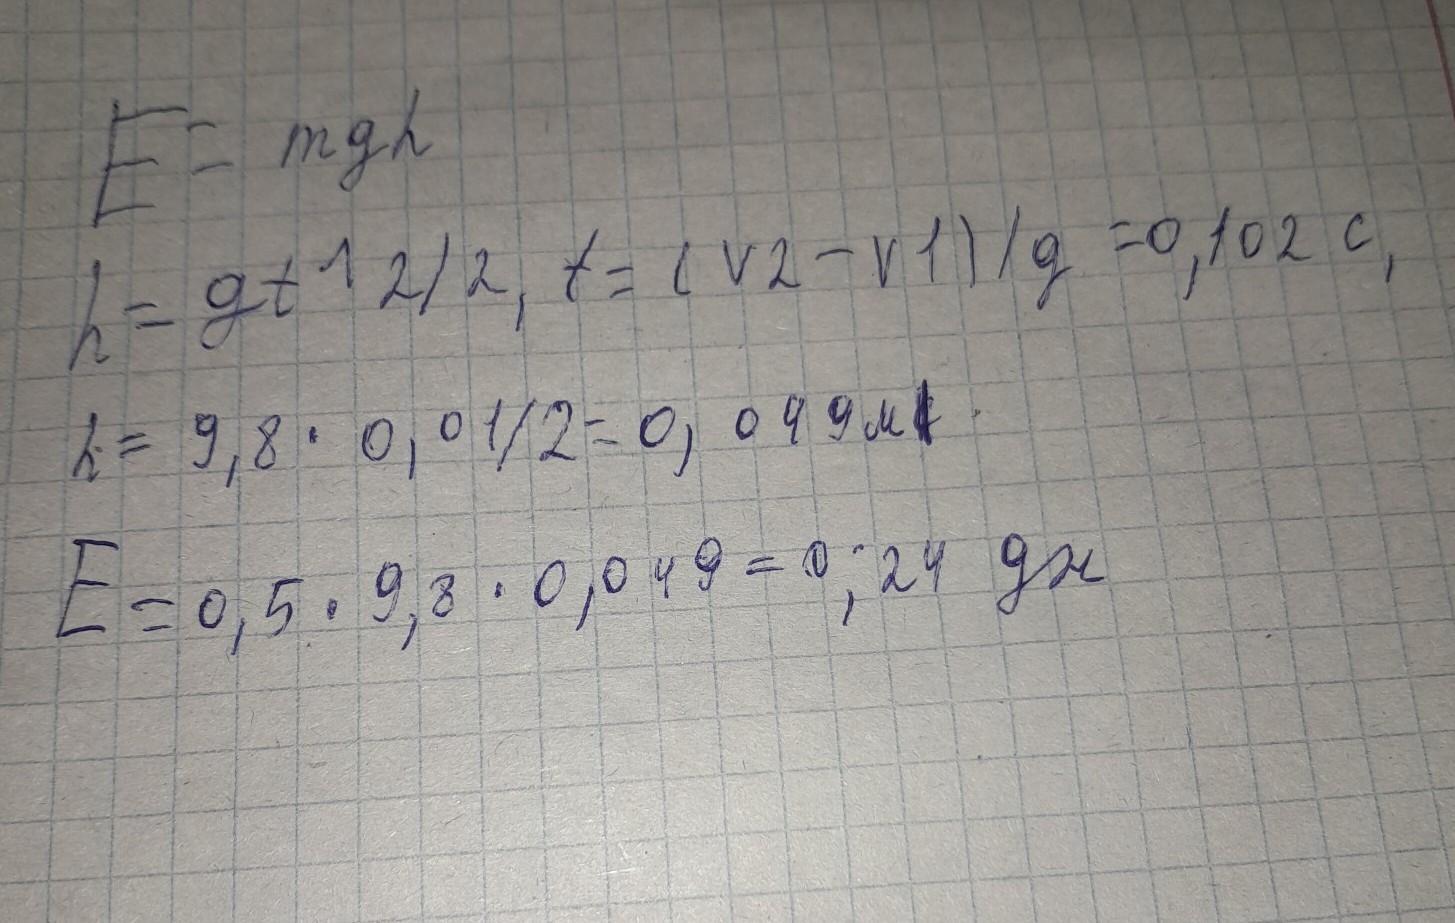 E = mgh
h = gt^2/2, t = (v2-v1)/g = 0,102 с,
h = 9,8 · 0,01/2 = 0,049м.
E = 0,5 · 9,8 · 0,049 = 0,24 дж